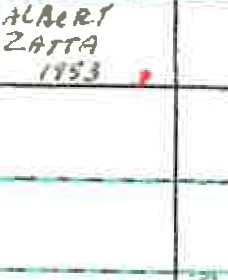 ALBERT
ZATTA
1953